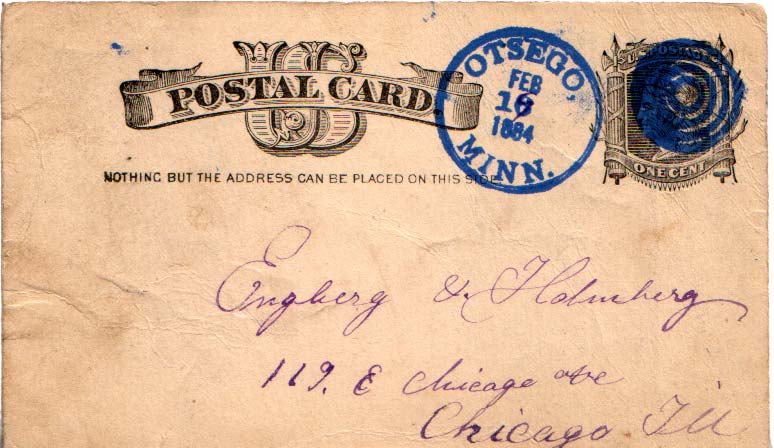 US
POSTAL CARD
NOTHING BUT THE ADDRESS CAN BE PLACED ON THIS SIDE.
OTSEGO,
FEB
16
1884
MINN.
U.S. POSTAGE
ONE CENT
Engberg & Holmberg
119. E Chicago Ave
Chicago Ill